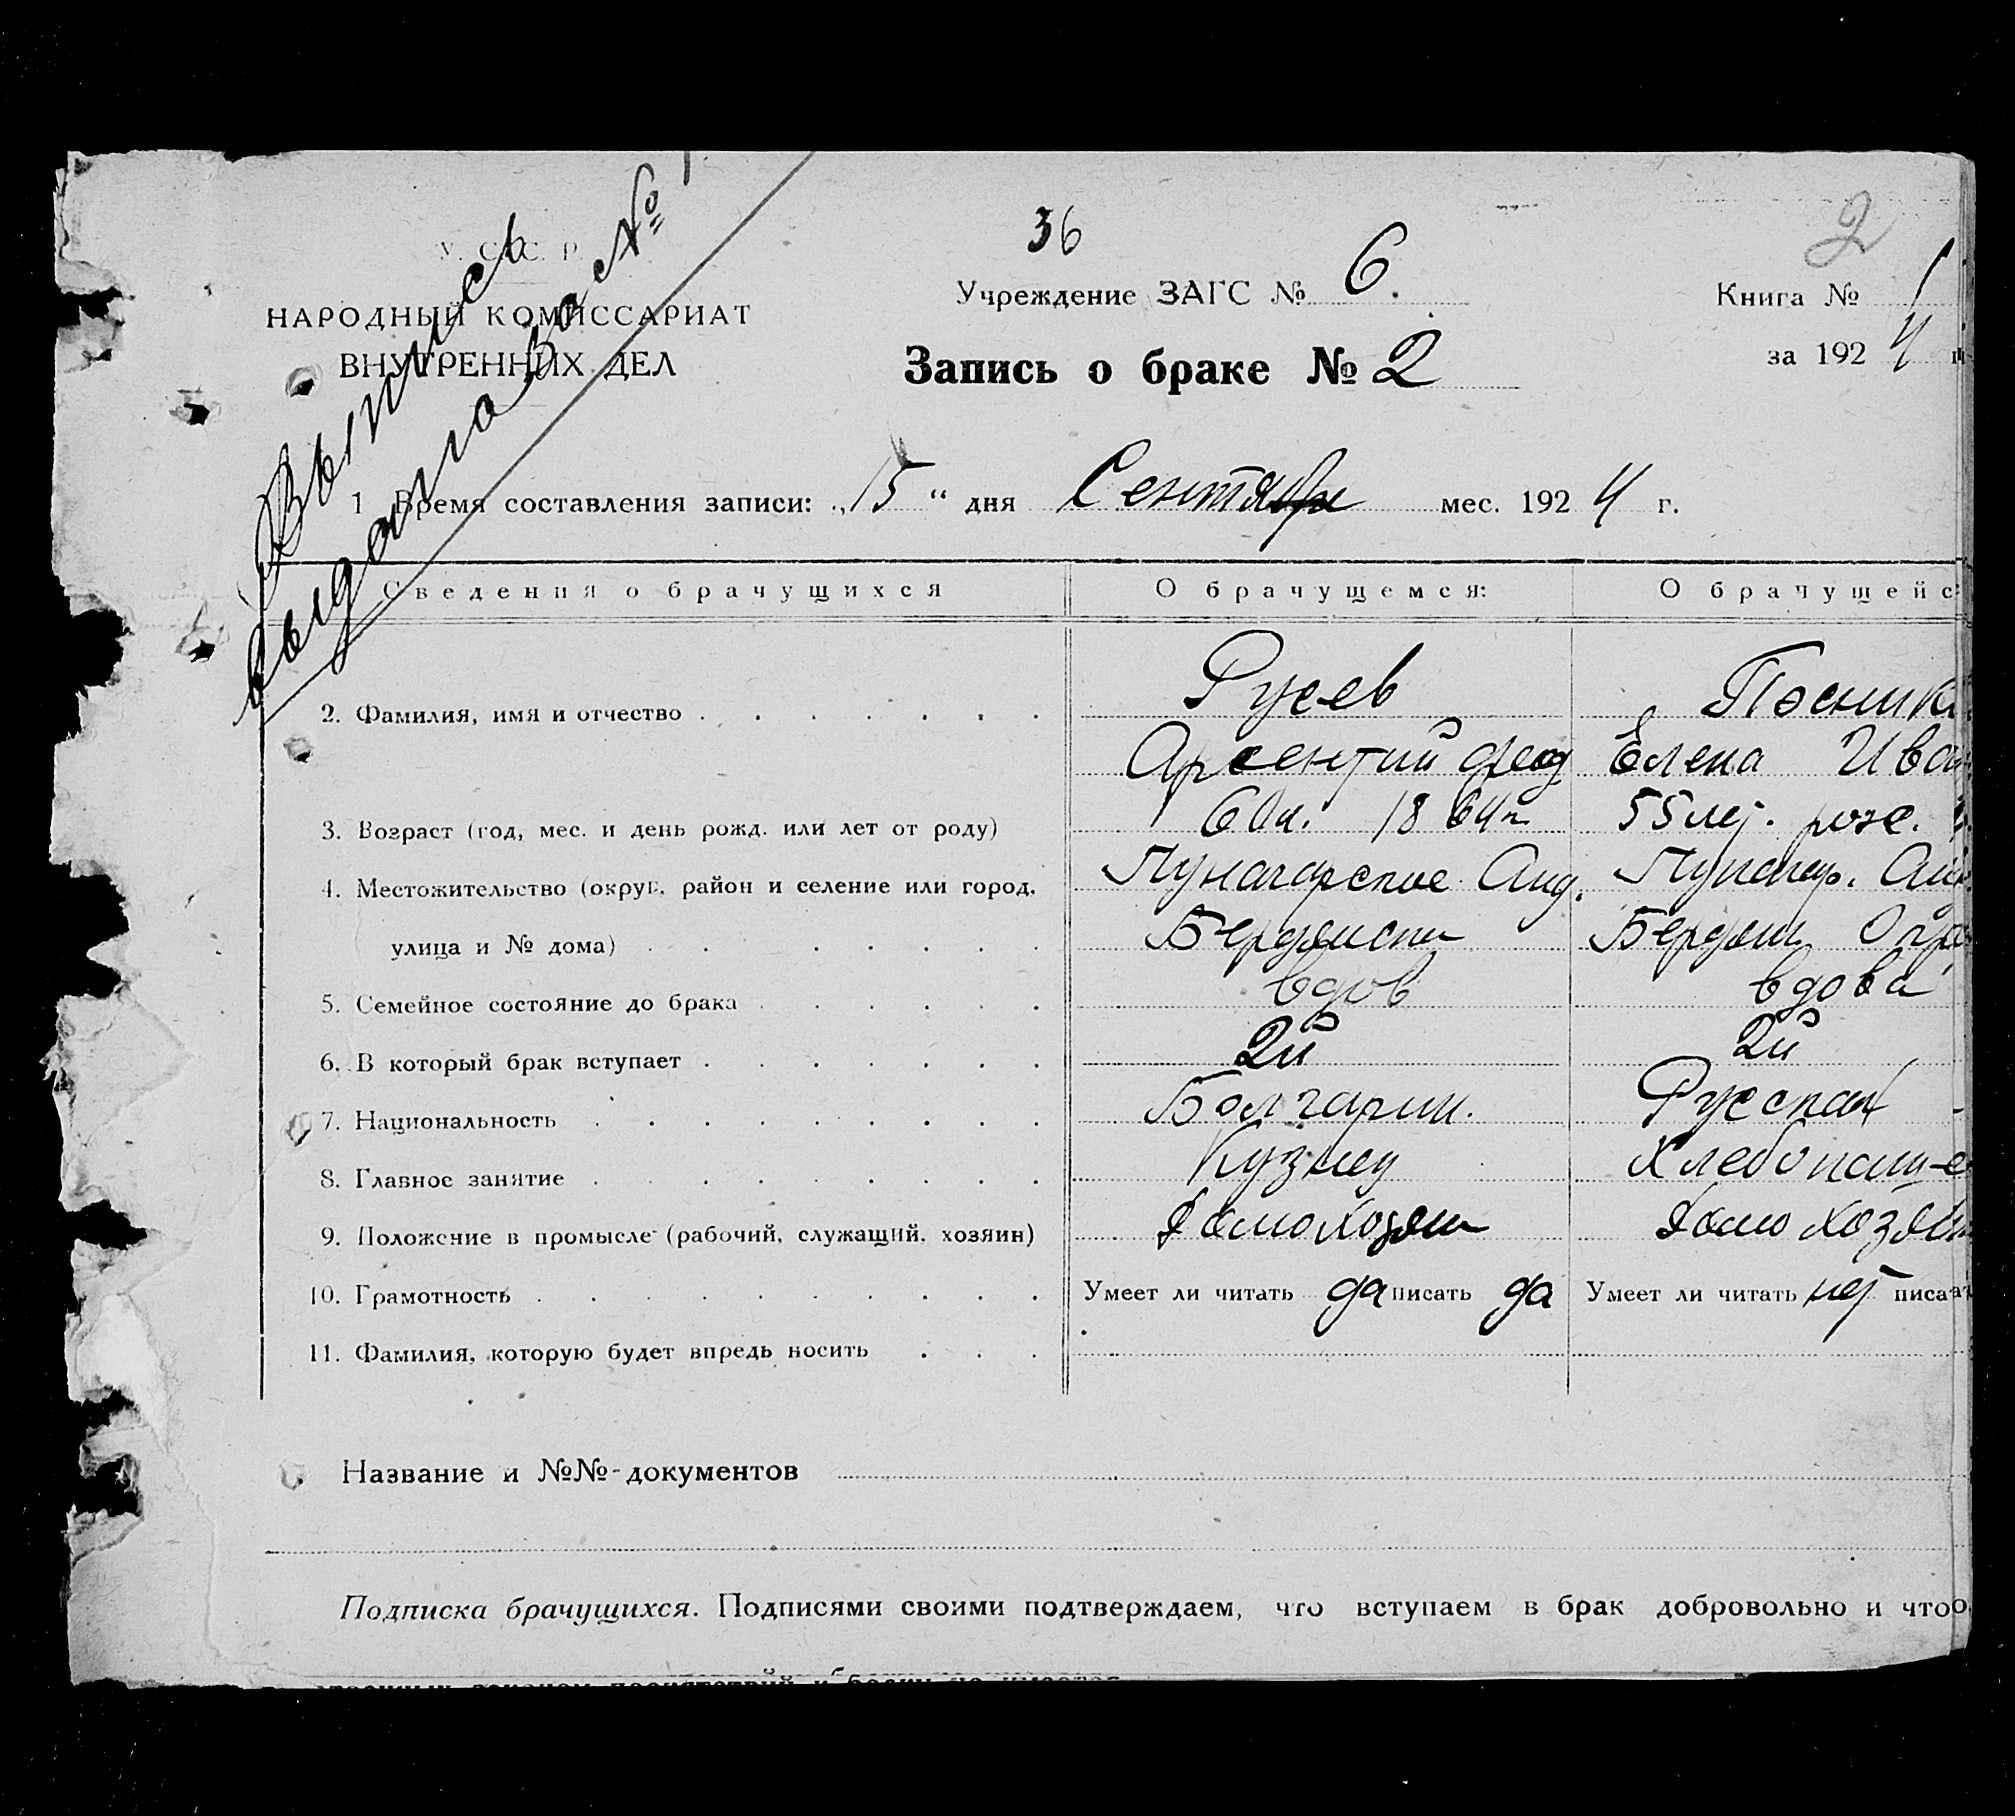 36
2
У. С. С. Р.
НАРОДНЫЙ КОМИССАРИАТ
ВНУТРЕННИХ ДЕЛ
Выпись
выдана за №
Учреждение ЗАГС № 6.
Книга № 1
Запись о браке № 2
за 1924
1 Время составления записи: „15 “ дня Сентября мес. 1924 г.
Сведения о брачущихся О брачущемся: О брачущейс
2. Фамилия, имя и отчество Русев Посник
Арсентий Феод Елена Иван
3. Возраст (год, мес. и день рожд. или лет от роду) 60л. 1864г 55 лет. рож.
4. Местожительство (округ, район и селение или город, Луначарское Анд. Луначар. Анд
улица и № дома) Бердянск Бердян Окр
5. Семейное состояние до брака вдов вдова
6. В который брак вступает 2й 2й
7. Национальность Болгарин. Русская
8. Главное занятие Кузнец Хлебопаш-е
9. Положение в промысле (рабочий, служащий, хозяин) Домохозяин Домохозяи
10. Грамотность Умеет ли читать да писать да Умеет ли читать нет писат
11. Фамилия, которую будет впредь носить
Название и №№-документов
Подписка брачущихся. Подписями своими подтверждаем, что вступаем в брак добровольно и что